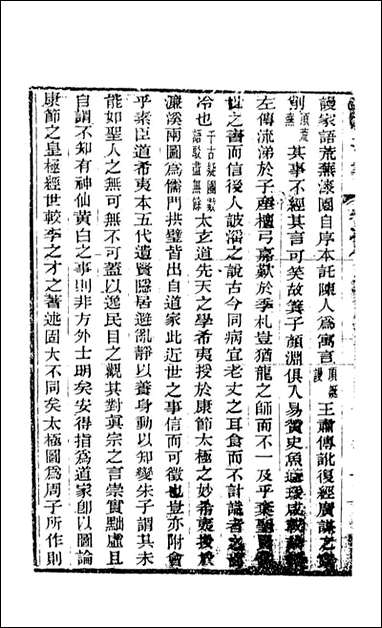 謾家語荒蕪漆園自序本託陳人爲寓言頂荒謾王肅傳訛復經廣謀之
別頂荒蕪其事不經其言可笑故箕子顏淵俱入易贊史魚蘧瑗咸
左傳流涕於子產檀弓嘉歎於季札豈猶龍之師而不一及乎
世之書而信後人詖淫之說古今同病宜老丈之耳食而不計識者之
冷也千古疑團數語駁盡無餘太玄道先天之學希夷授於康節太極之妙希夷授於
濂溪兩圖爲儒門拱璧皆出自道家此近世之事信而可徵也豈亦附會
乎奏臣道希夷本五代遺賢隱居避亂靜以養身動以知變朱子謂其未
能如聖人之無可無不可蓋以逸民目之觀其對眞宗之言崇實黜虛且
自謂不知有神仙黃白之事則非方外士明矣安得指爲道家卽以圖論
康節之皇極經世較李之才之著述固大不同矣太極圖爲周子所作則